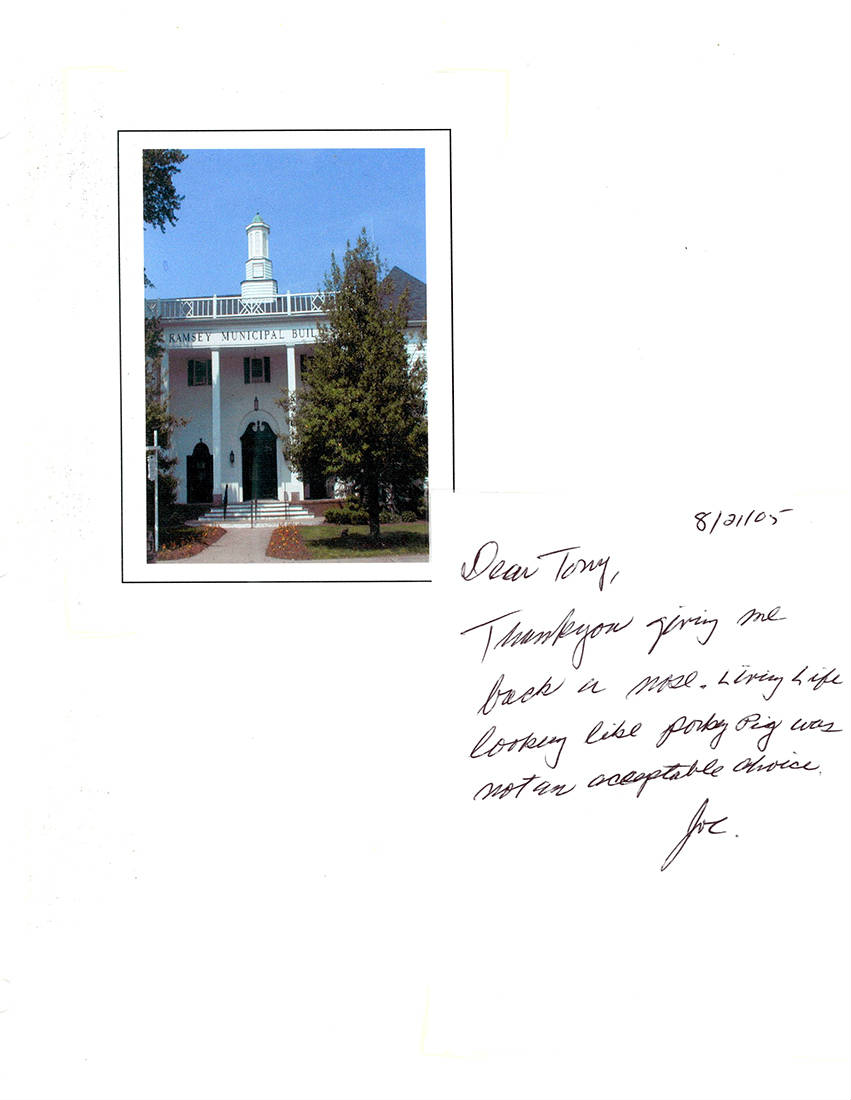 RAMSEY MUNICIPAL BUIL
8/21/05
Dear Tony,
Thankyou giving me
back a nose. Living Life
looking like porky Pig was
not an acceptable choice.
Joe.